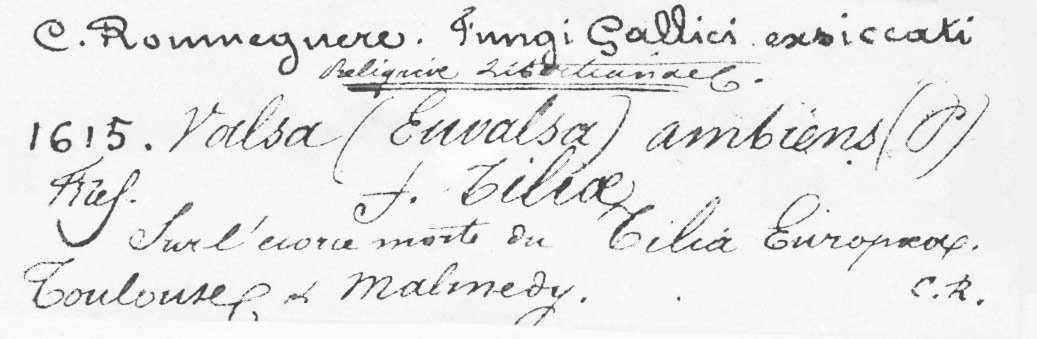 C. Roumeguere. Fungi Gallici exsiccati
Reliquiæ Libertianae.
1615. Valsa (Euvalsa) ambiens (P)
Fries. f. Tiliæ
Sur l'ecorce morte du Tilia Europaea.
Toulouse & Malmedy. C.R.